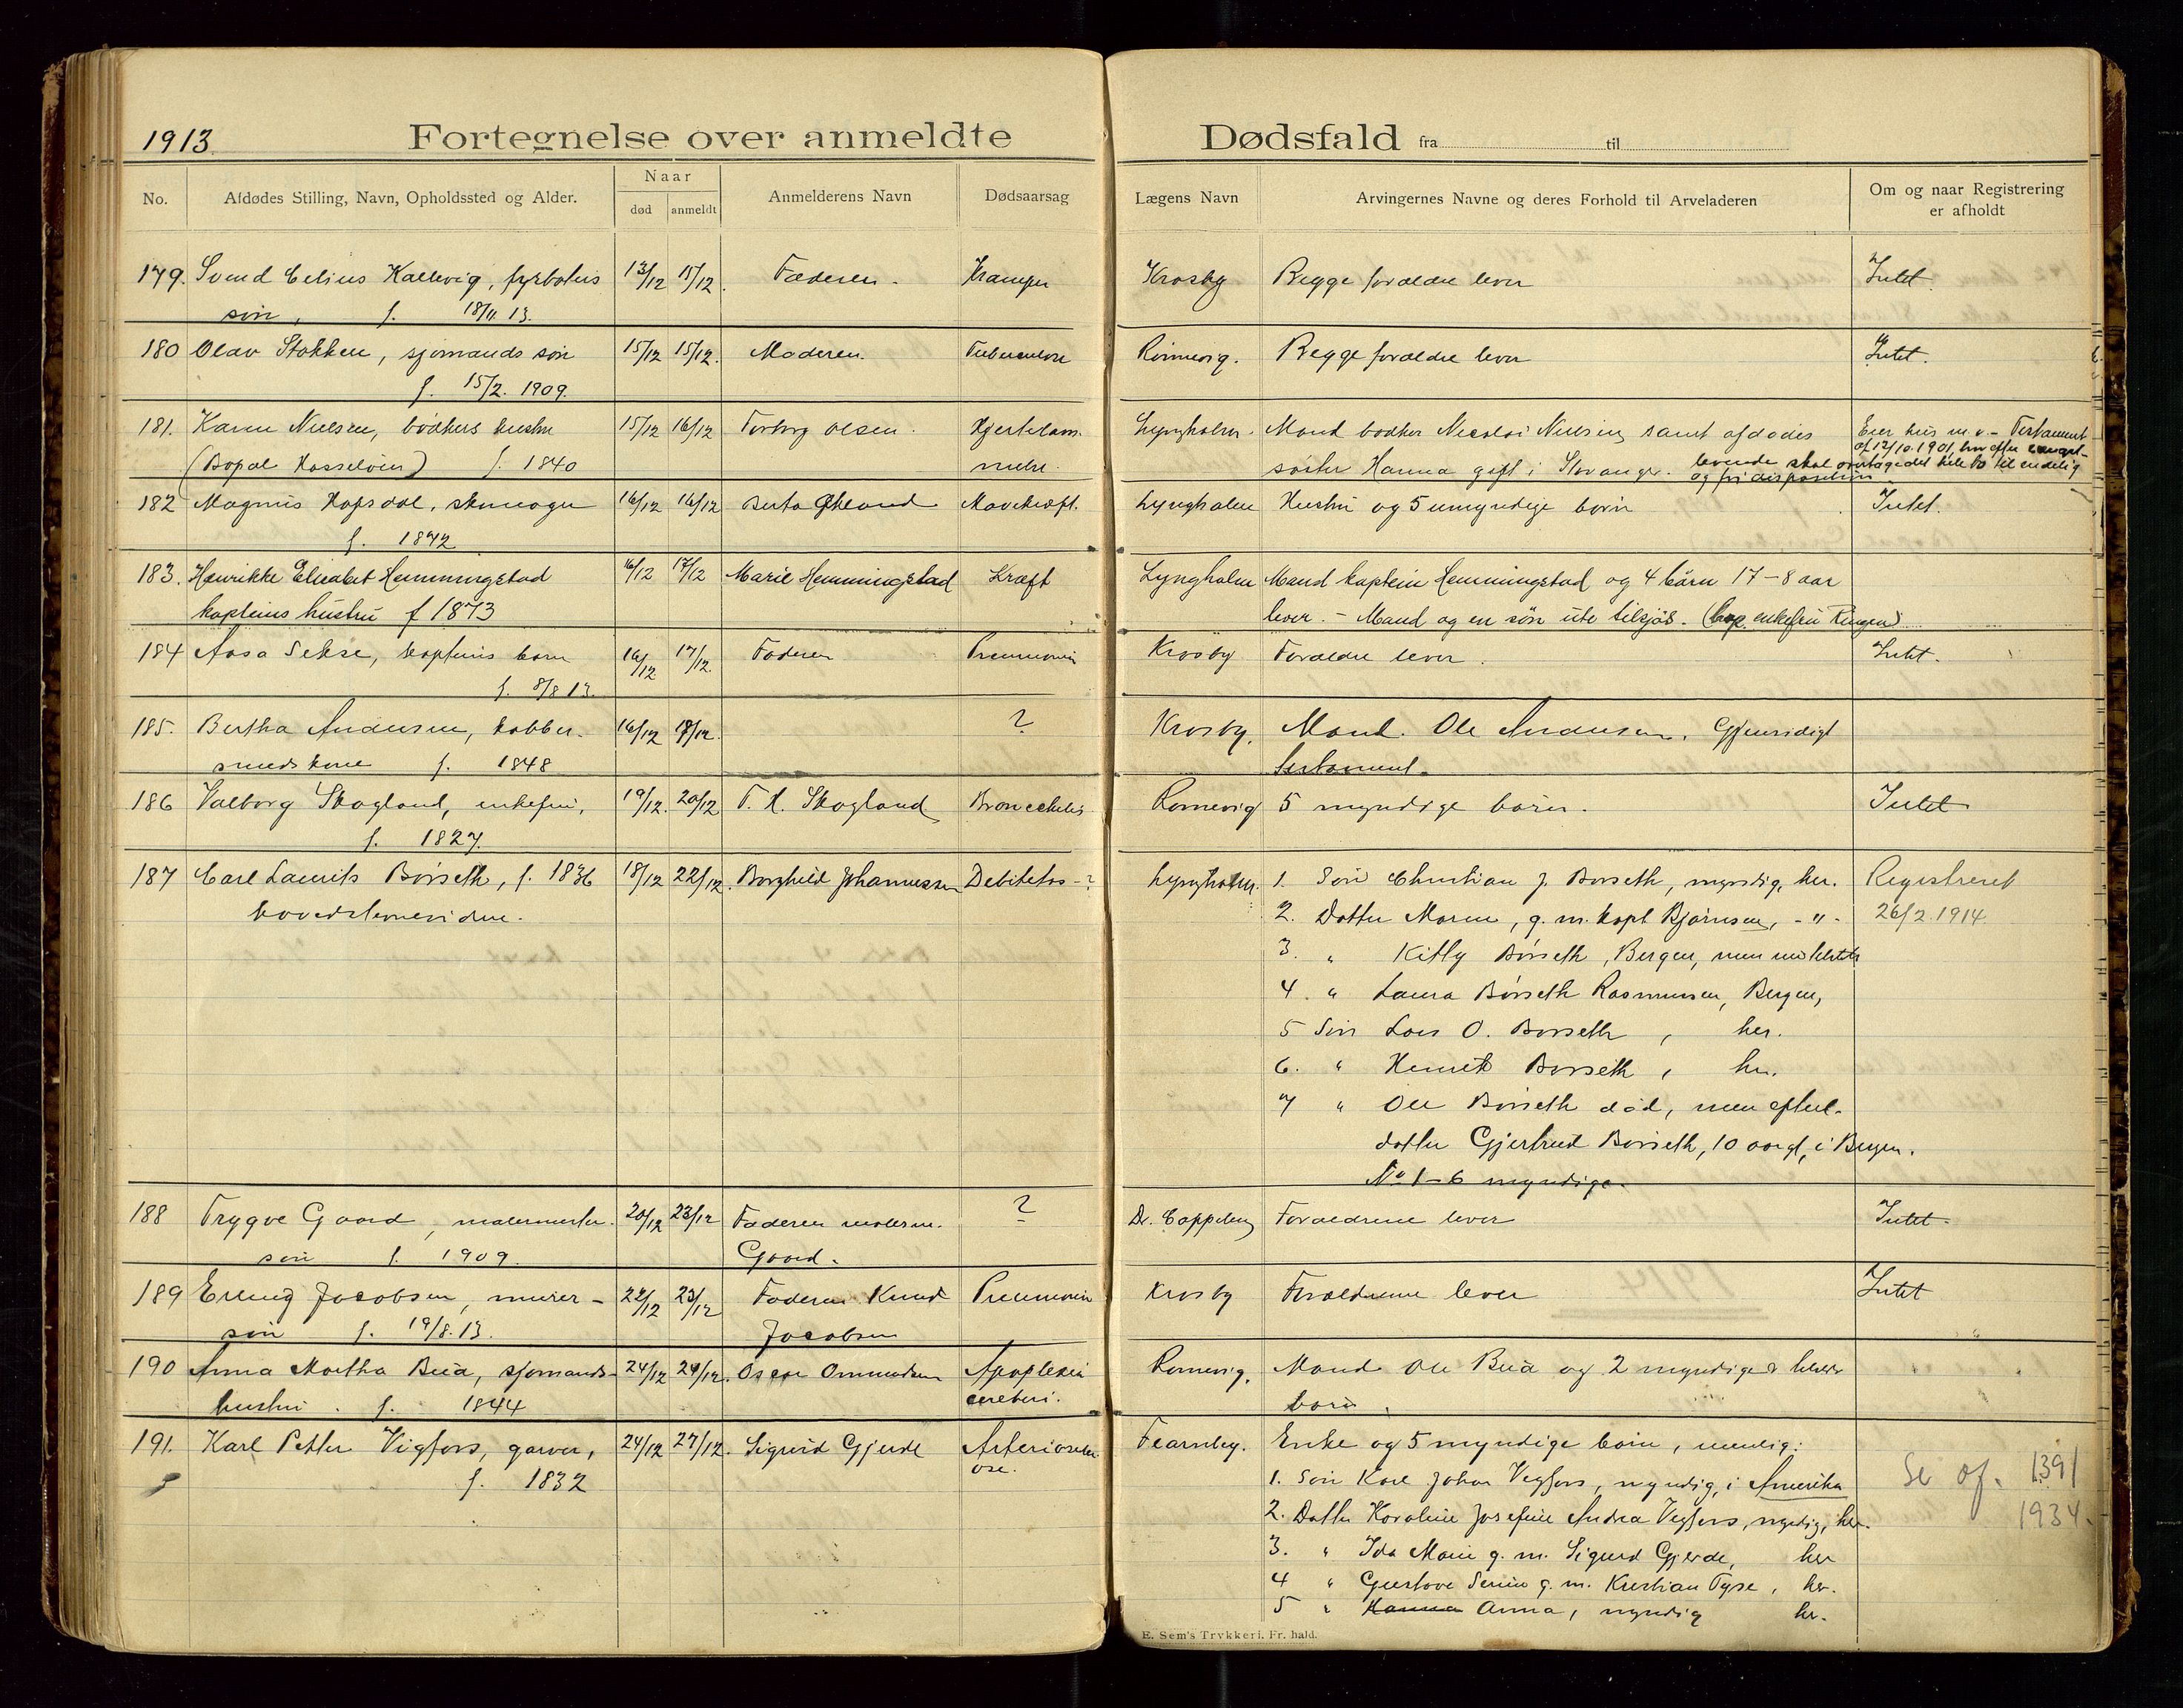 1913
Fortegnelse over anmeldte Dødsfald fra til
No. Afdødes Stilling, Navn, Opholdssted og Alder. Naar død anmeldt Anmelderens Navn Dødsaarsag Lægens Navn Arvingernes Navne og deres Forhold til Arveladeren Om og naar Registrering er afholdt
179. Svend Celius Kallevig, fyrbøters 13/12 15/12. Faderen. Kramper Krosby Begge forældre lever Intet
søn, f. 18/11 13.
180 Olav Stokken, sjømands søn 15/12 15/12. Moderen. Tuberculose Rømevig. Begge forældre lever Intet.
f. 15/2. 1909.
181. Karen Nielsen, bødkers hustru 15/12 16/12 Torborg Olsen. Hjertelam- Lyngholm. Mand bødker Nicolai Nielsen samt afdødes Eier hus m.v. - Testament
(Bopæl Hasseløen) f. 1840 melse. søster Hanna gift i Stavanger. af 12/10.1901, hvor efter længst-
levende skal overtage det hele bo til endelig
og fri disposition
182 Magnus Hopsdal, skomager 16/12 16/12 Berta Økland Mavekræft. Lyngholm Hustru og 5 umyndige børn Intet.
f. 1842
183. Henrikke Elisabet Hemmingstad 16/12 17/12 Marie Hemmingstad Kræft Lyngholm Mand kaptein Hemmingstad og 4 børn 17-8 aar
kapteins hustru f 1873 lever. - Mand og en søn ute tilsjøs. (bop. enkefru Ringen)
184 Aasa Sekse, kapteins barn 16/12 17/12. Faderen Pneumoni Krosby Forældre lever. Intet.
f. 8/8 13.
185. Bertha Andersen, kobber- 16/12 17/12. ? Krosby. Mand. Ole Andersen. Gjensidigt
smedskone f. 1848 testament.
186 Valborg Skogland, enkefru, 19/12. 20/12 T. H. Skogland Bronchitis Rømevig 5 myndige børn. Intet
f. 1827.
187 Carl Laurits Børseth, f. 1836 18/12 22/12. Borghild Johannessen Debilitas-? Lyngholm. 1. Søn Christian J. Børseth, myndig, her. Registreret
hovedstevnevidne. 2. Datter Maren, g. m. kapt Bjørnsen, - " - 26/2 1914.
3. " Kitty Børseth, Bergen,
4. " Laura Børseth Rasmussen, Bergen,
5 Søn Lars O. Børseth, her.
6. " Henrik Børseth, her.
7 " Ole Børseth død, men efterl.
datter Gjertrud Børseth, 10 aar gl, i Bergen.
No 1-6 myndige.
188 Trygve Gaard, malermester- 20/12 23/12 Faderen malerm. ? Dr. Cappelen Forældrene lever Intet.
søn f. 1909. Gaard.
189 Erling Jacobsen, murer- 22/12 23/12 Faderen Knud Pneumoni Krosby Forældrene lever Intet
søn f. 19/8.13. Jacobsen
190 Anna Martha Bua, sjømands- 24/12 24/12. Oscar Ommundsen Apoplexia Rømevig. Mand Ole Bua og 2 myndige
hustru. f. 1844 cerebri. børn.
191. Karl Petter Vigfors, garver, 24/12 27/12. Sigurd Gjerde Arterioscler- Fearnley. Enke og 5 myndige børn, nemlig:
f. 1832 ose. 1. Søn Karl Johan Vigfors, myndig, i Amerika Se of. 1391
2. Datter Karoline Josefine Andrea Vigfors, myndig, her. 1934.
3. " Ida Marie g. m. Sigurd Gjerde, her
4 " Gustava Serine g. m. Kristian Tysse, her.
5 " Hanna Anna, myndig her.
E. Sem's Trykkeri. Fr. hald.